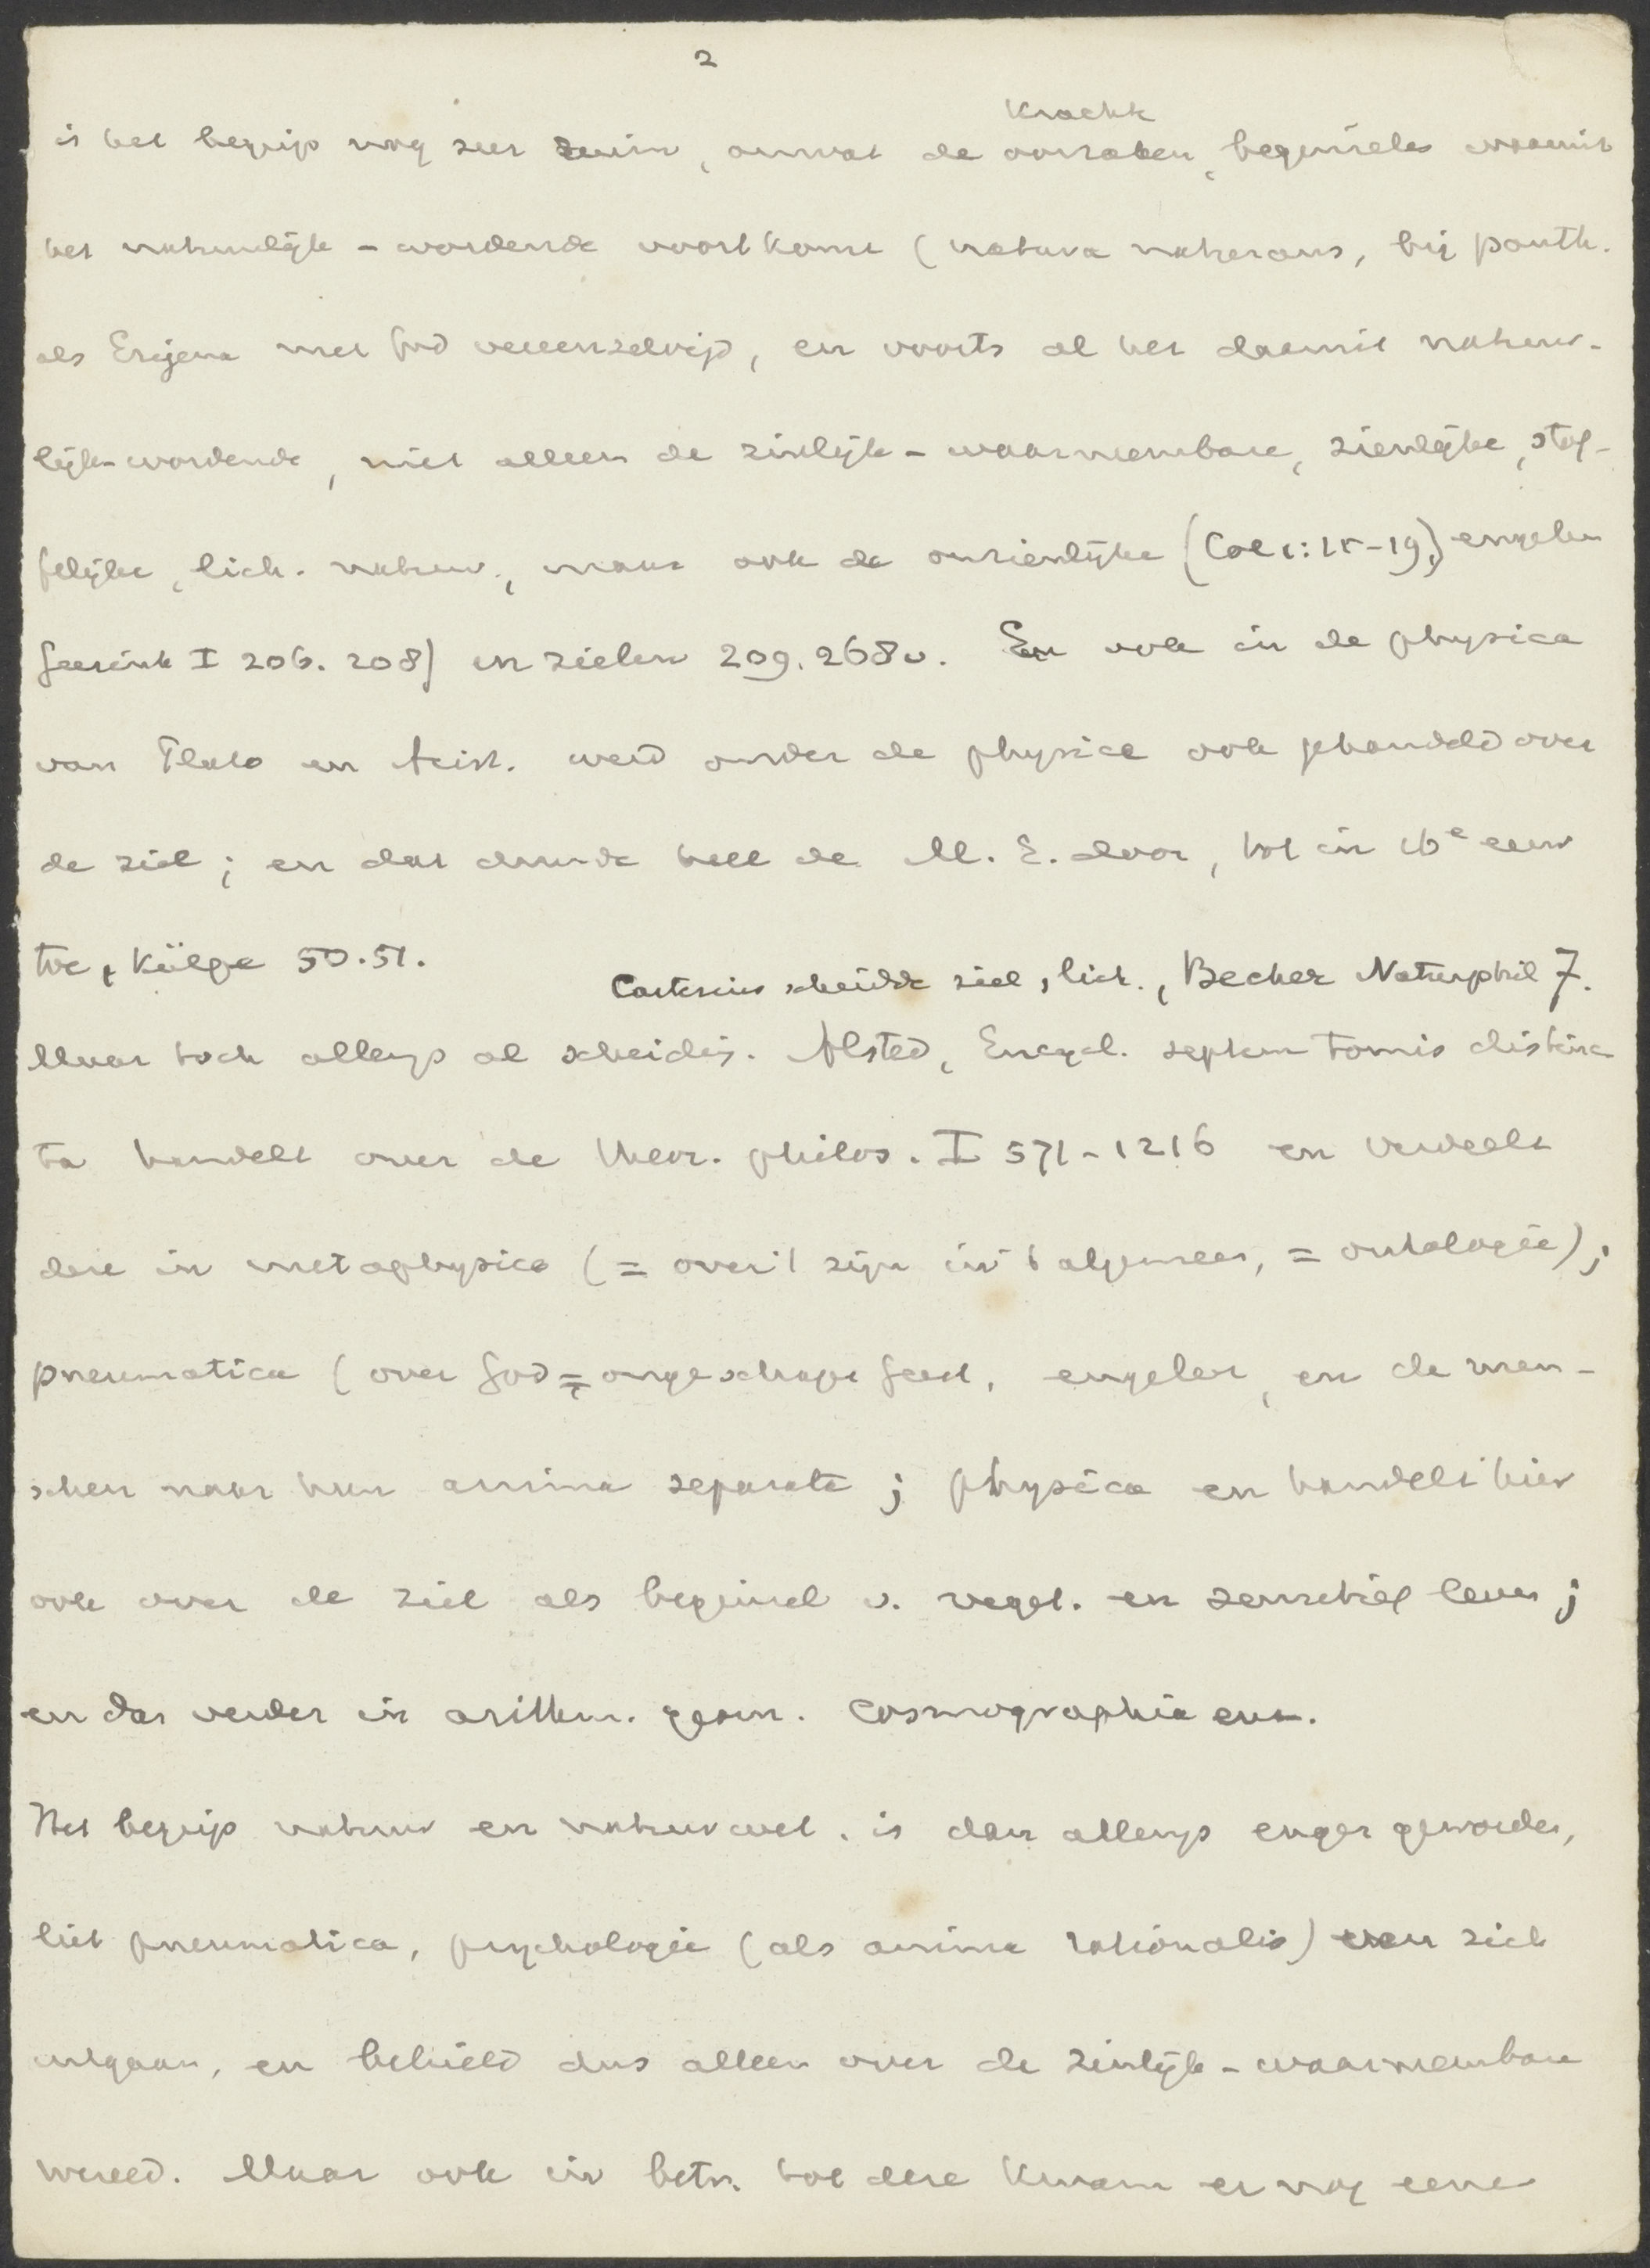 2
krachten
is het begrip nog zeer ruim, omvat de oorzaken, beginselen waaruit
het natuurlijk-wordende voortkomt (natura naturans, bij panth.
als Erigena met God vereenzelvigd, en voorts al het daaruit natuur-
lijk-wordende, niet alleen de zinlijk-waarneembare, zienlijke, stof-
felijke, lich. natuur, maar ook de onzienlijke (Col 1:15-19,) engelen
Geesink I 206. 208) en zielen 209. 268v. En ook in de physica
van Plato en Arist. werd onder de physica ook gehandeld over
de ziel; en dat duurde heel de M. E. door, tot in 16e eeuw
toe, Külpe 50.51.
Cartesius scheidde ziel, lich., Becher Naturphil 7.
Maar toch allengs al scheidig. Alsted, Encycl. septem tomis distinc-
ta handelt over de theor. philos. I 571-1216 en verdeelt
deze in metaphysica (= over 't zijn in 't algemeen, = ontologie);
pneumatica (over God = ongeschape Geest, engelen, en de men-
schen naar hun anima separata; physica en handelt hier
ook over de ziel als beginsel v. veget. en sensitief leven;
en dan verder in arithm. geom. Cosmographia enz.
Het begrip natuur en natuurwet. is dan allengs enger geworden,
liet pneumatica, psychologie (als anima rationalis) van zich
uitgaan, en behield dus alleen over de zinlijk-waarneembare
wereld. Maar ook in betr. tot deze kwam er nog eene